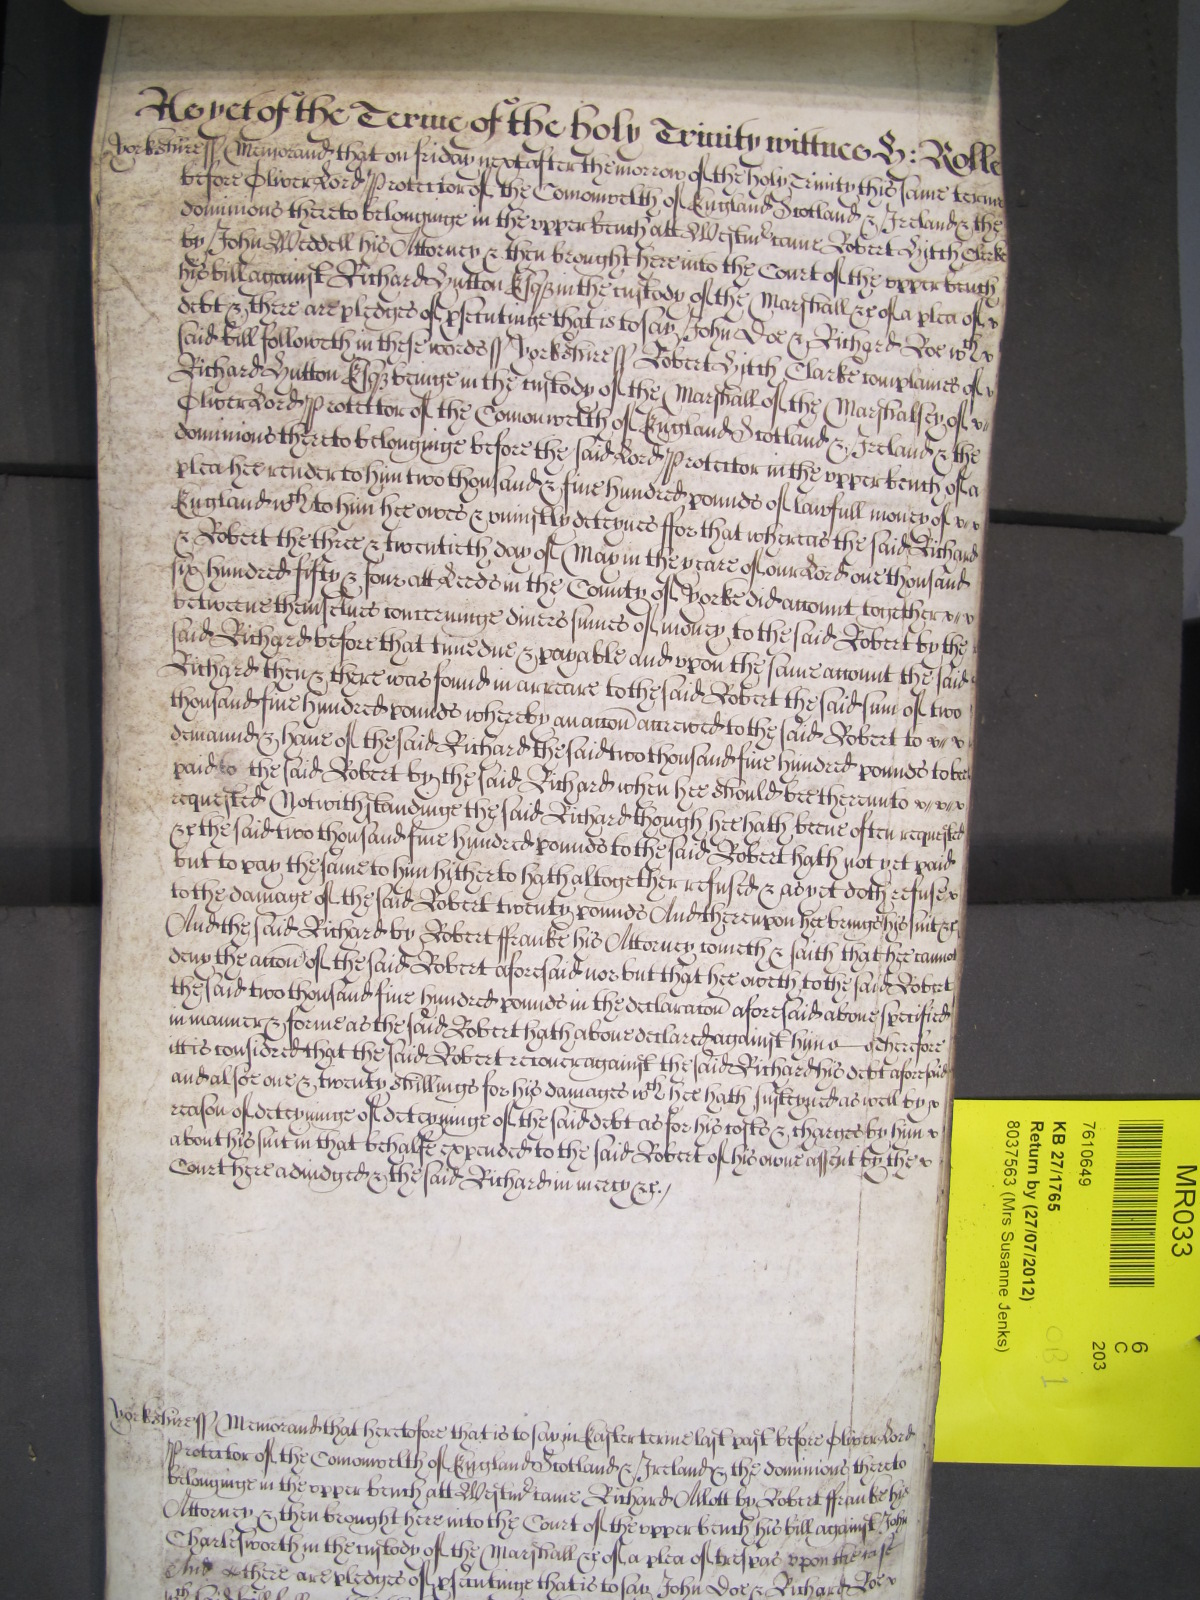 As yet of the Terme of the holy Trinity wittnes H: Rolle
Yorkshire ss Memorand that on friday next after the morrow of the holy Trinity this same terme
before Oliver Lord Protector of the Comonwelth of England Scotland & Ireland & the
dominions thereto belonginge in the upper bench att Westmr came Robert Hitch Clerke
by John Weddell his Attorney & then brought here into the Court of the upper bench
his bill against Richard Hutton Esqr in the custody of the Marshall &c of a plea of
debt & there are pledges of psecutinge that is to say John Doe & Richard Roe wch
said bill followeth in these words ss Yorkshire ss Robert Hitch Clarke complaines of
Richard Hutton Esqr beinge in the custody of the Marshall of the Marshalsey of
Oliver Lord Protector of the Comonwelth of England Scotland & Ireland & the
dominions thereto belonginge before the said Lord Protector in the upper bench of a
plea hee render to him two thousand & five hundred pounds of lawfull money of
England wch to him hee owes & uniustly deteynes ffor that whereas the said Richard
& Robert the three & twentieth day of May in the yeare of our Lord one thousand
six hundred fifty & four att Leeds in the County of Yorke did account together
betweene themselves concerninge divers sumes of money to the said Robert by the
said Richard before that time due & payable and upon the same account the said
Richard then & there was found in arreare to the said Robert the said sum of two
thousand five hundred pounds whereby an accon accrewed to the said Robert to
demaund & have of the said Richard the said two thousand five hundred pounds to bee
paid to the said Robert by the said Richard when hee should bee thereunto
requested Notwithstandinge the said Richard though hee hath beene often requested
&c the said two thousand five hundred pounds to the said Robert hath not yet paid
but to pay the same to him hitherto hath altogether refused & as yet doth refuse
to the damage of the said Robert twenty pounds And thereupon hee brings his suit &c
And the said Richard by Robert ffranke his Attorney cometh & saith that hee cannot
deny the accon of the said Robert aforesaid nor but that hee oweth to the said Robert
the said two thousand five hundred pounds in the declaracon aforesaid above specified
in manner & forme as the said Robert hath above declared against him Therefore
itt is considred that the said Robert recover against the said Richard his debt aforesaid
and alsoe one & twenty shillings for his damages wch hee hath susteyned as well by
reason of deteyninge of deteyninge of the said debt as for his costs & charges by him
about his suit in that behalfe expended to the said Robert of his owne assent by the
Court here adiudged & the said Richard in mercy &c.
Yorkshire ss Memorand that heretofore that is to say in Easter terme last past before Oliver Lord
Protector of the Comonwelth of England Scotland & Ireland & the dominions thereto
belonginge in the upper bench att Westmr came Richard Allott by Robert ffranke his
Attorney & then brought here into the Court of the upper bench his bill against John
Charlesworth in the custody of the Marshall &c of a plea of trespas upon the case
And there are pledges of psecutinge that is to say John Doe & Richard Roe
MR033
6
C
203
7610649
KB 27/1765
Return by (27/07/2012)
8037563 (Mrs Susanne Jenks)